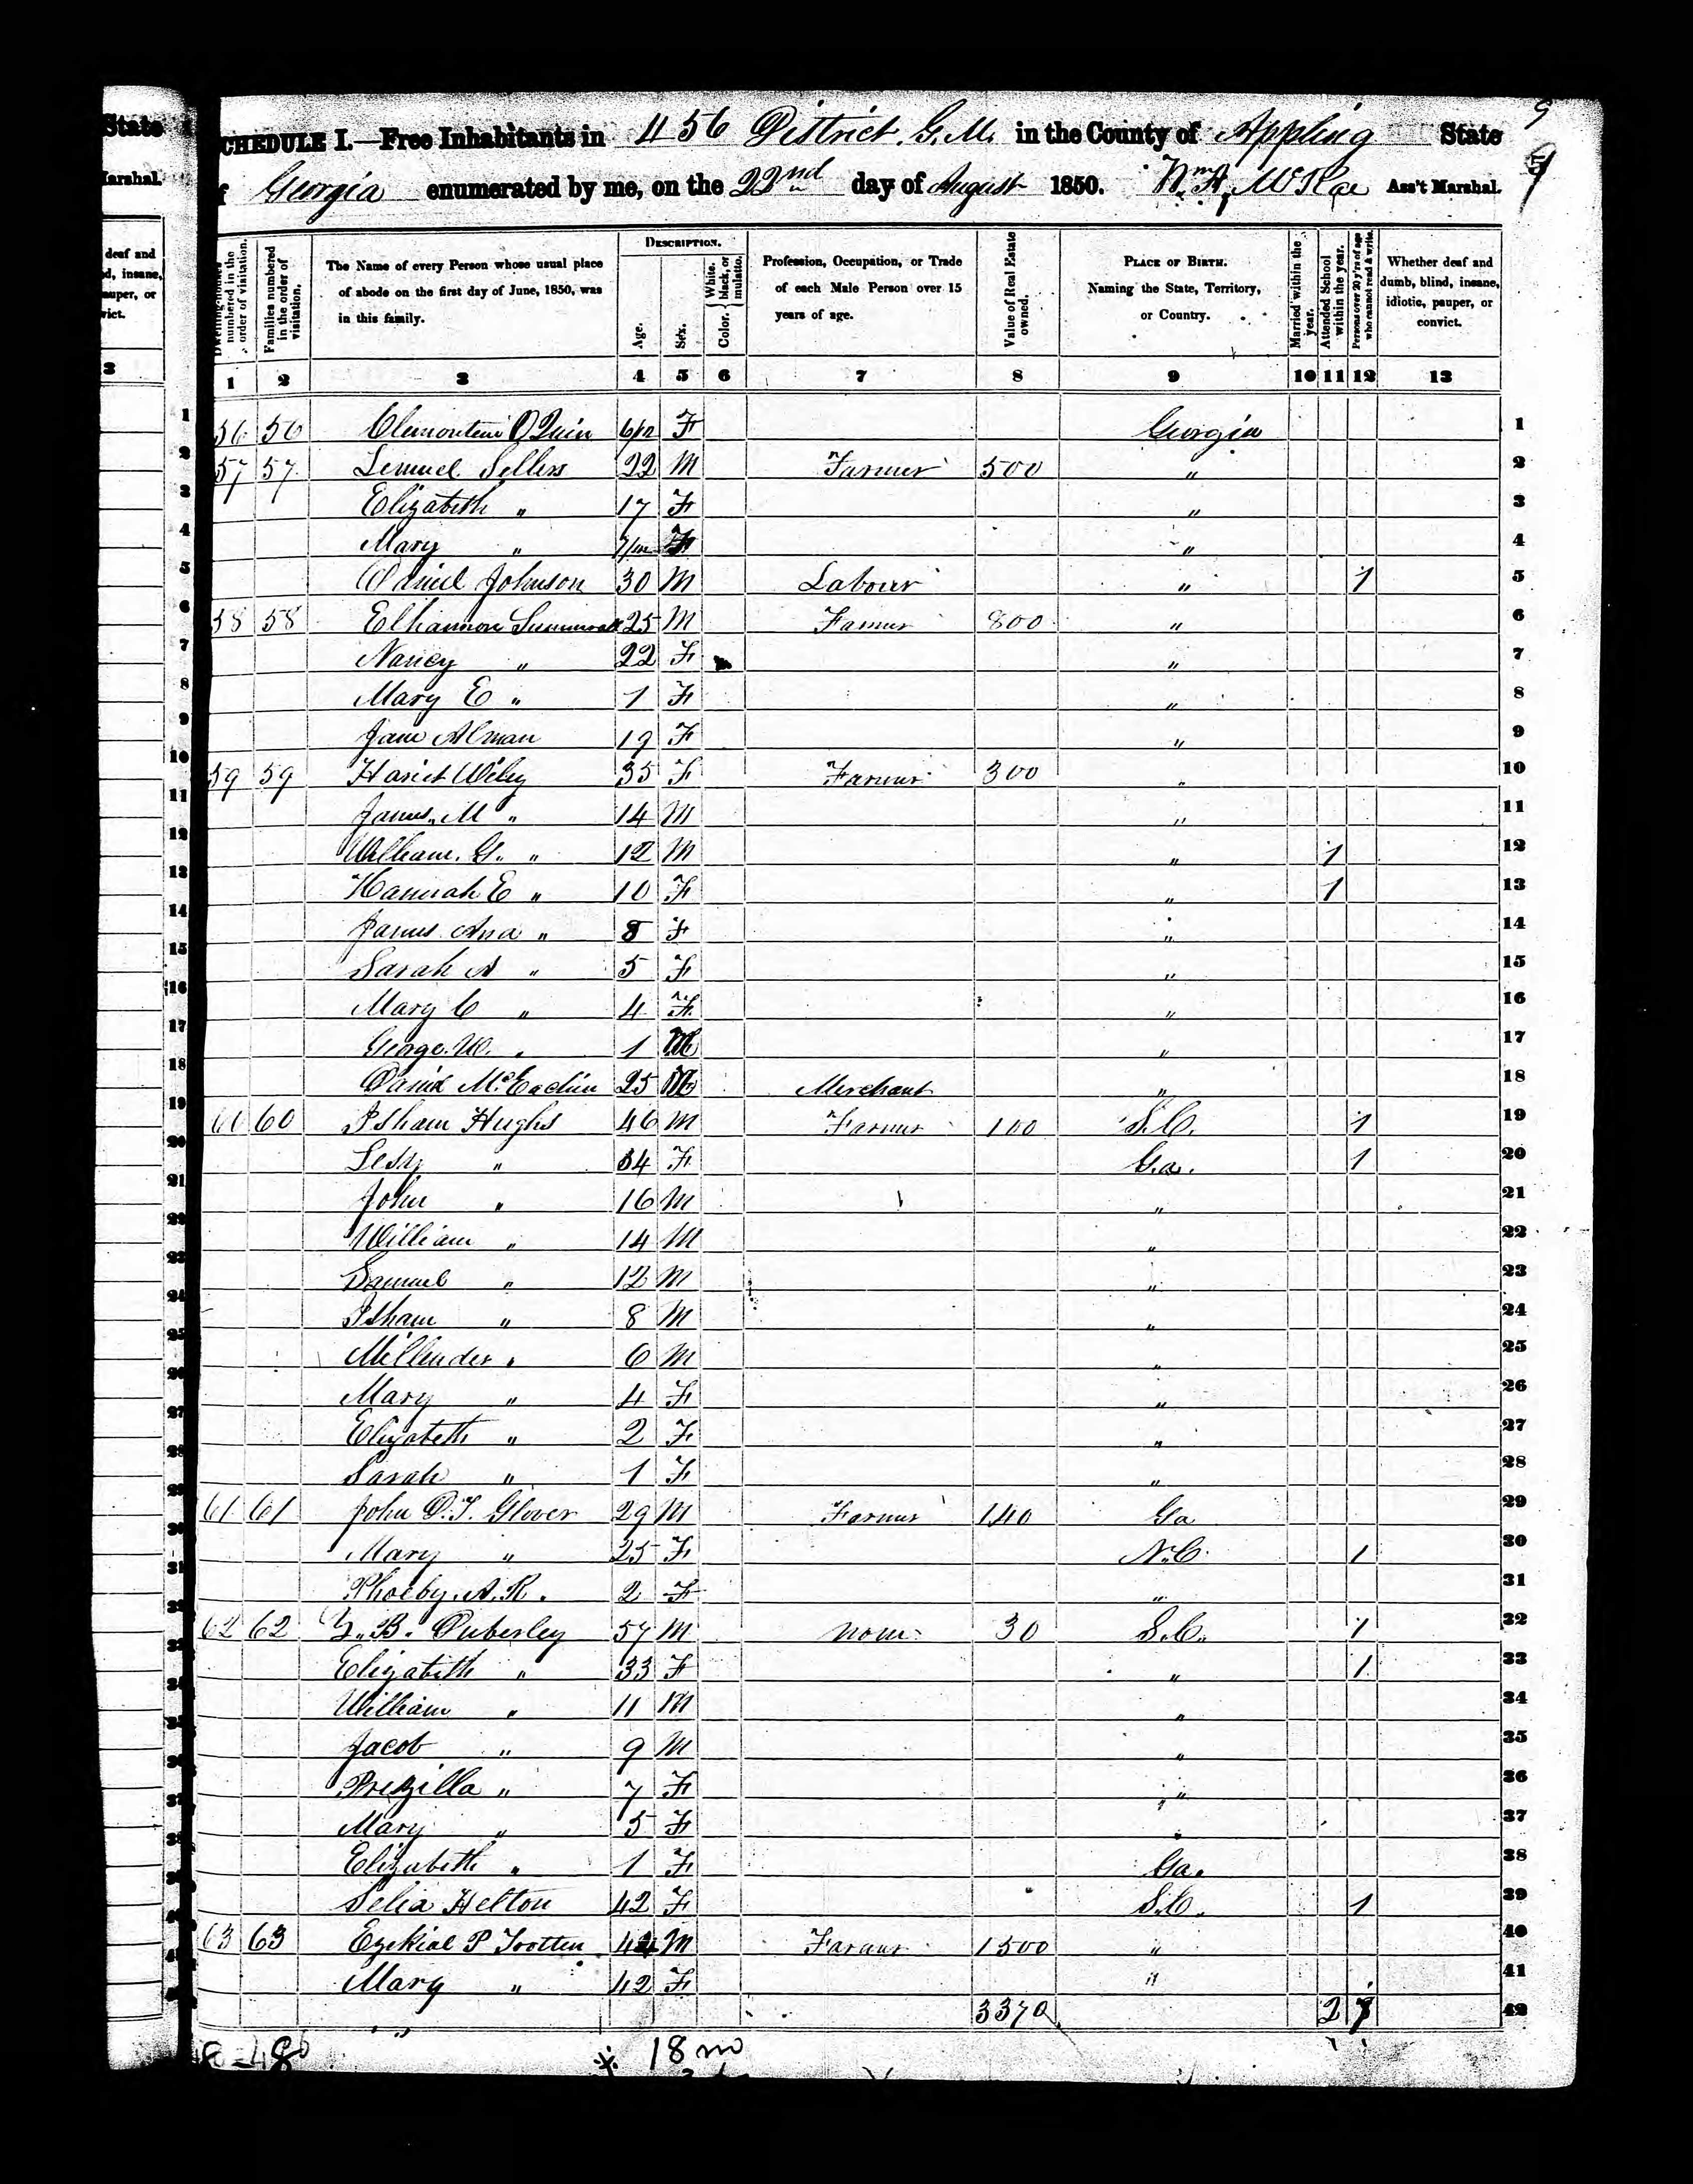 State
SCHEDULE I.—Free Inhabitants in 456 District. G. M. in the County of Appling State
of Georgia enumerated by me, on the 22nd day of August 1850. Wm A, McRae Ass't Marshal.
Dwelling-houses numbered in the order of visitation.
Families numbered in the order of visitation.
The Name of every Person whose usual place of abode on the first day of June, 1850, was in this family.
DESCRIPTION.
Age.
Sex.
Color. { White, black, or mulatto.
Profession, Occupation, or Trade of each Male Person over 15 years of age.
Value of Real Estate owned.
PLACE OF BIRTH. Naming the State, Territory, or Country.
Married within the year.
Attended School within the year.
Persons over 20 y'rs of age who cannot read & write.
Whether deaf and dumb, blind, insane, idiotic, pauper, or convict.
1 2 3 4 5 6 7 8 9 10 11 12 13
1 56 56 Clemontine O Quin 6/12 F Georgia 1
2 57 57 Lemuel Sellers 22 M Farmer 500 " 2
3 Elizabeth " 17 F " 3
4 Mary " 7/12 F " 4
5 Daniel Johnson 30 M Labour " 1 5
6 58 58 Elhannon Summerall 25 M Farmer 800 " 6
7 Nancy " 22 F " 7
8 Mary E " 1 F " 8
9 Jane Alman 19 F " 9
10 59 59 Hariet Wiley 35 F Farmer 300 " 10
11 James. M " 14 M " 11
12 William. G. " 12 M " 1 12
13 Hannah E " 10 F " 1 13
14 James Ana " 8 F " 14
15 Sarah A " 5 F " 15
16 Mary C " 4 F " 16
17 George. W. " 1 M " 17
18 David McEachin 25 M Merchant " 18
19 60 60 Isham Hughs 46 M Farmer 100 S.C. 1 19
20 Lesy " 34 F G.a. 1 20
21 John " 16 M " 21
22 William " 14 M " 22
23 Samuel " 12 M " 23
24 Isham " 8 M " 24
25 Millender " 6 M " 25
26 Mary " 4 F " 26
27 Elizabeth " 2 F " 27
28 Sarah " 1 F " 28
29 61 61 John D. T. Glover 29 M Farmer 140 Ga 29
30 Mary " 25 F N.C. 1 30
31 Phoeby. A. R. " 2 F " 31
32 62 62 B. Duberley 57 M None 30 S.C. 1 32
33 Elizabeth " 33 F " 1 33
34 William " 11 M " 34
35 Jacob " 9 M " 35
36 Prezilla " 7 F " 36
37 Mary " 5 F " 37
38 Elizabeth " 1 F Ga. 38
39 Selia Helton 42 F S.C. 1 39
40 63 63 Ezekial P Trotten 44 M Farmer 1500 " 40
41 Mary " 42 F " 41
3370 2 7 42
18 m